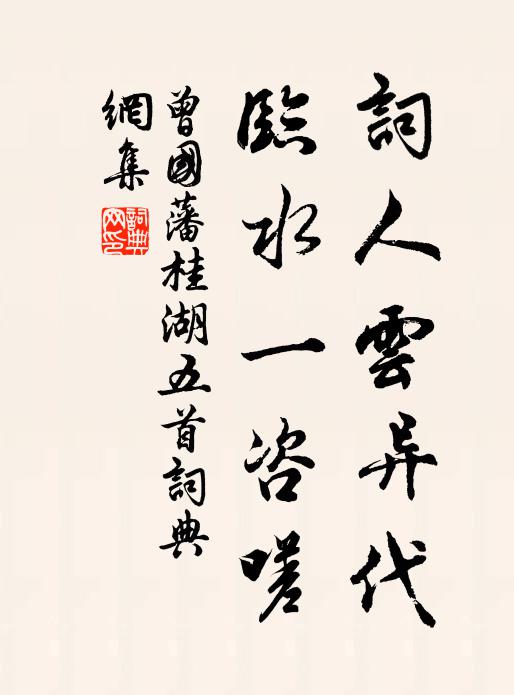 詞人雲异代
臨水一咨嗟
曾國藩桂湖五首詞典
網集
詞典
网印